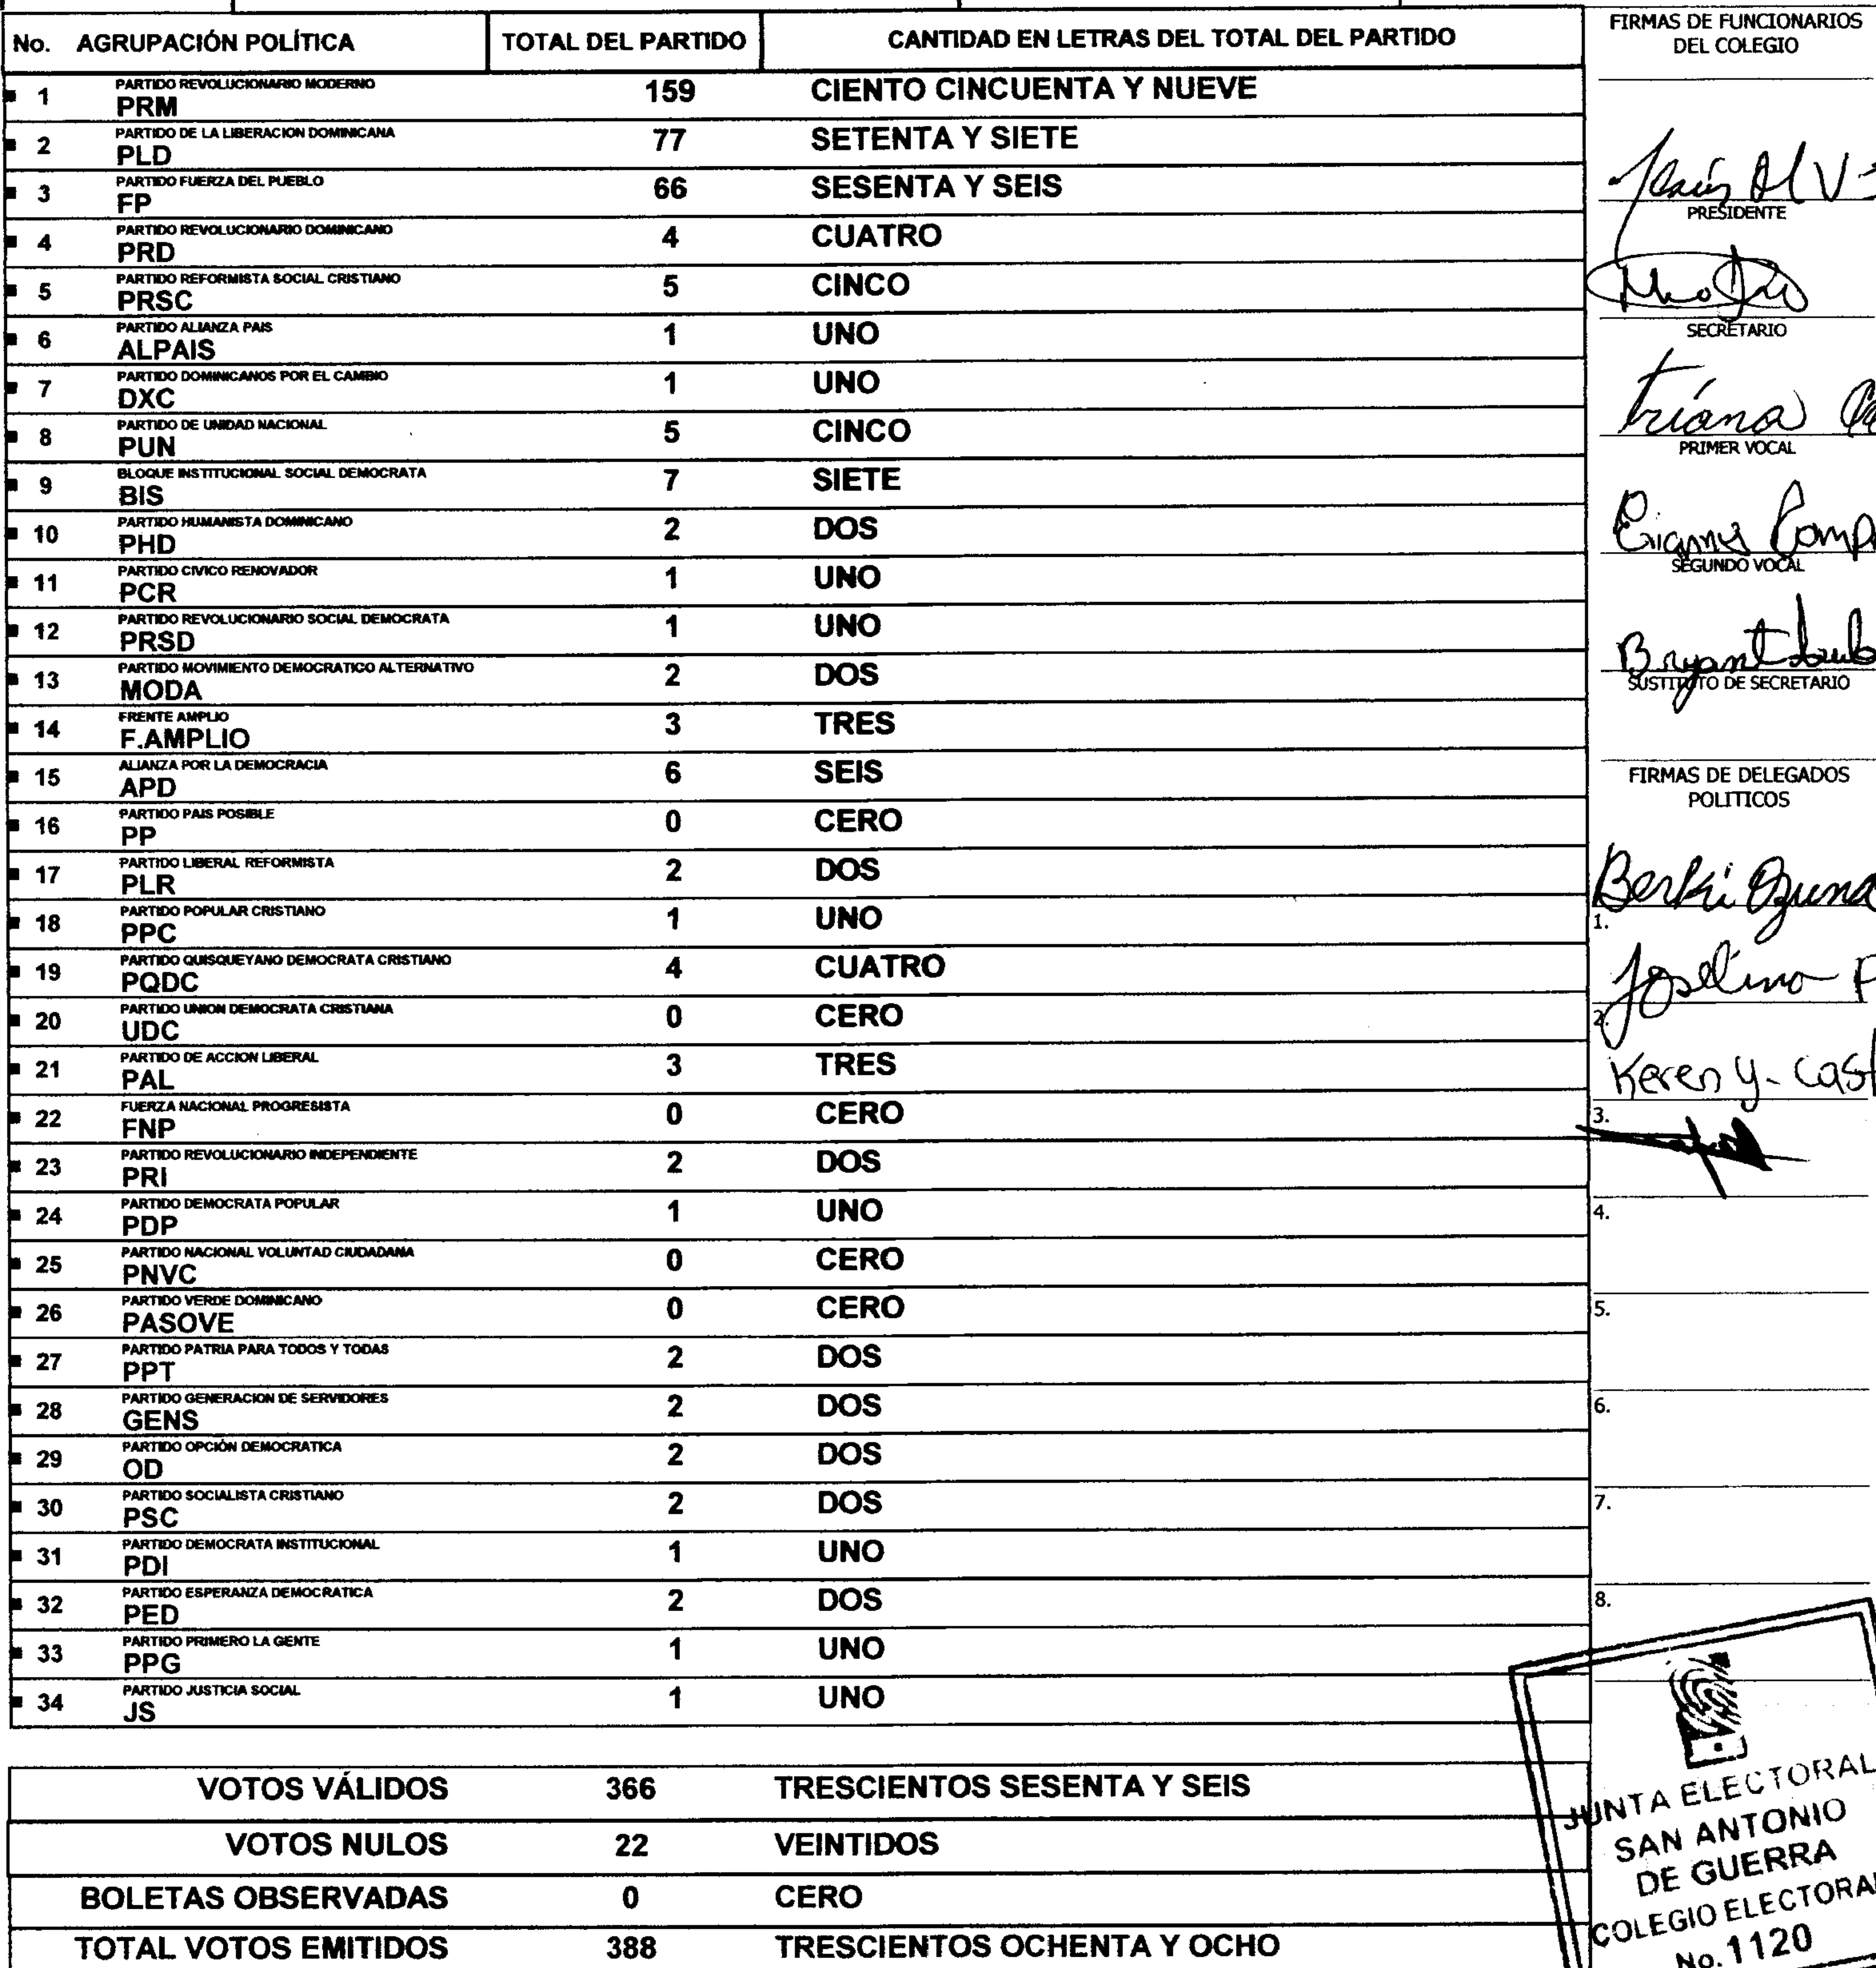 No. AGRUPACIÓN POLÍTICA TOTAL DEL PARTIDO CANTIDAD EN LETRAS DEL TOTAL DEL PARTIDO
1 PARTIDO REVOLUCIONARIO MODERNO
PRM 159 CIENTO CINCUENTA Y NUEVE
2 PARTIDO DE LA LIBERACION DOMINICANA
PLD 77 SETENTA Y SIETE
3 PARTIDO FUERZA DEL PUEBLO
FP 66 SESENTA Y SEIS
4 PARTIDO REVOLUCIONARIO DOMINICANO
PRD 4 CUATRO
5 PARTIDO REFORMISTA SOCIAL CRISTIANO
PRSC 5 CINCO
6 PARTIDO ALIANZA PAIS
ALPAIS 1 UNO
7 PARTIDO DOMINICANOS POR EL CAMBIO
DXC 1 UNO
8 PARTIDO DE UNIDAD NACIONAL
PUN 5 CINCO
9 BLOQUE INSTITUCIONAL SOCIAL DEMOCRATA
BIS 7 SIETE
10 PARTIDO HUMANISTA DOMINICANO
PHD 2 DOS
11 PARTIDO CIVICO RENOVADOR
PCR 1 UNO
12 PARTIDO REVOLUCIONARIO SOCIAL DEMOCRATA
PRSD 1 UNO
13 PARTIDO MOVIMIENTO DEMOCRATICO ALTERNATIVO
MODA 2 DOS
14 FRENTE AMPLIO
F.AMPLIO 3 TRES
15 ALIANZA POR LA DEMOCRACIA
APD 6 SEIS
16 PARTIDO PAIS POSIBLE
PP 0 CERO
17 PARTIDO LIBERAL REFORMISTA
PLR 2 DOS
18 PARTIDO POPULAR CRISTIANO
PPC 1 UNO
19 PARTIDO QUISQUEYANO DEMOCRATA CRISTIANO
PQDC 4 CUATRO
20 PARTIDO UNION DEMOCRATA CRISTIANA
UDC 0 CERO
21 PARTIDO DE ACCION LIBERAL
PAL 3 TRES
22 FUERZA NACIONAL PROGRESISTA
FNP 0 CERO
23 PARTIDO REVOLUCIONARIO INDEPENDIENTE
PRI 2 DOS
24 PARTIDO DEMOCRATA POPULAR
PDP 1 UNO
25 PARTIDO NACIONAL VOLUNTAD CIUDADANA
PNVC 0 CERO
26 PARTIDO VERDE DOMINICANO
PASOVE 0 CERO
27 PARTIDO PATRIA PARA TODOS Y TODAS
PPT 2 DOS
28 PARTIDO GENERACION DE SERVIDORES
GENS 2 DOS
29 PARTIDO OPCIÓN DEMOCRATICA
OD 2 DOS
30 PARTIDO SOCIALISTA CRISTIANO
PSC 2 DOS
31 PARTIDO DEMOCRATA INSTITUCIONAL
PDI 1 UNO
32 PARTIDO ESPERANZA DEMOCRATICA
PED 2 DOS
33 PARTIDO PRIMERO LA GENTE
PPG 1 UNO
34 PARTIDO JUSTICIA SOCIAL
JS 1 UNO
VOTOS VÁLIDOS 366 TRESCIENTOS SESENTA Y SEIS
VOTOS NULOS 22 VEINTIDOS
BOLETAS OBSERVADAS 0 CERO
TOTAL VOTOS EMITIDOS 388 TRESCIENTOS OCHENTA Y OCHO
FIRMAS DE FUNCIONARIOS
DEL COLEGIO
PRESIDENTE
SECRETARIO
PRIMER VOCAL
SEGUNDO VOCAL
Bryant
SUSTITUTO DE SECRETARIO
FIRMAS DE DELEGADOS
POLITICOS
Berki Ozuna
1.
Joselino P
2.
Keren y. Cast
3.
4.
5.
6.
7.
8.
JUNTA ELECTORAL
SAN ANTONIO
DE GUERRA
COLEGIO ELECTORAL
No. 1120